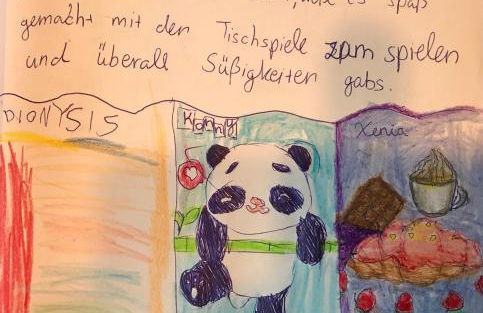 es spaß
gemacht mit den Tischspiele zum spielen
und überall Süßigkeiten gabs.
DIONYSIS
Xenia